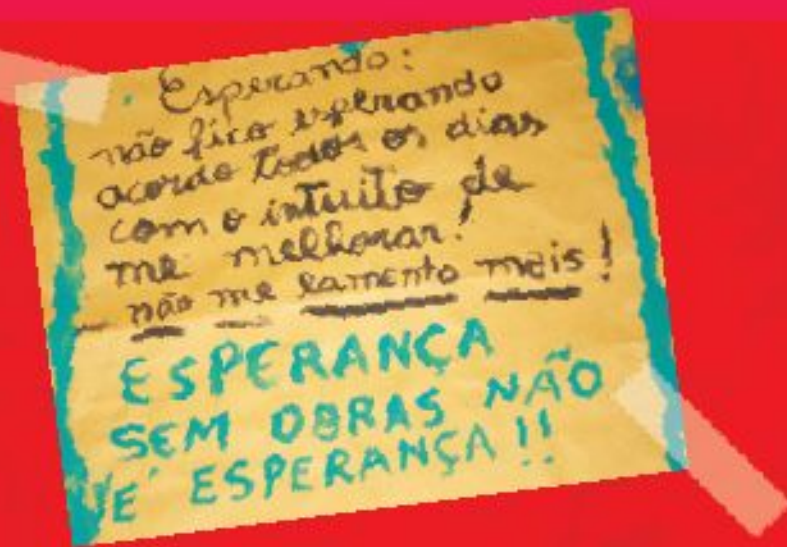 Esperando:
não fico esperando
acordo todos os dias
com o intuito de
me melhorar!
não me lamento mais!
ESPERANÇA
SEM OBRAS NÃO
É ESPERANÇA!!